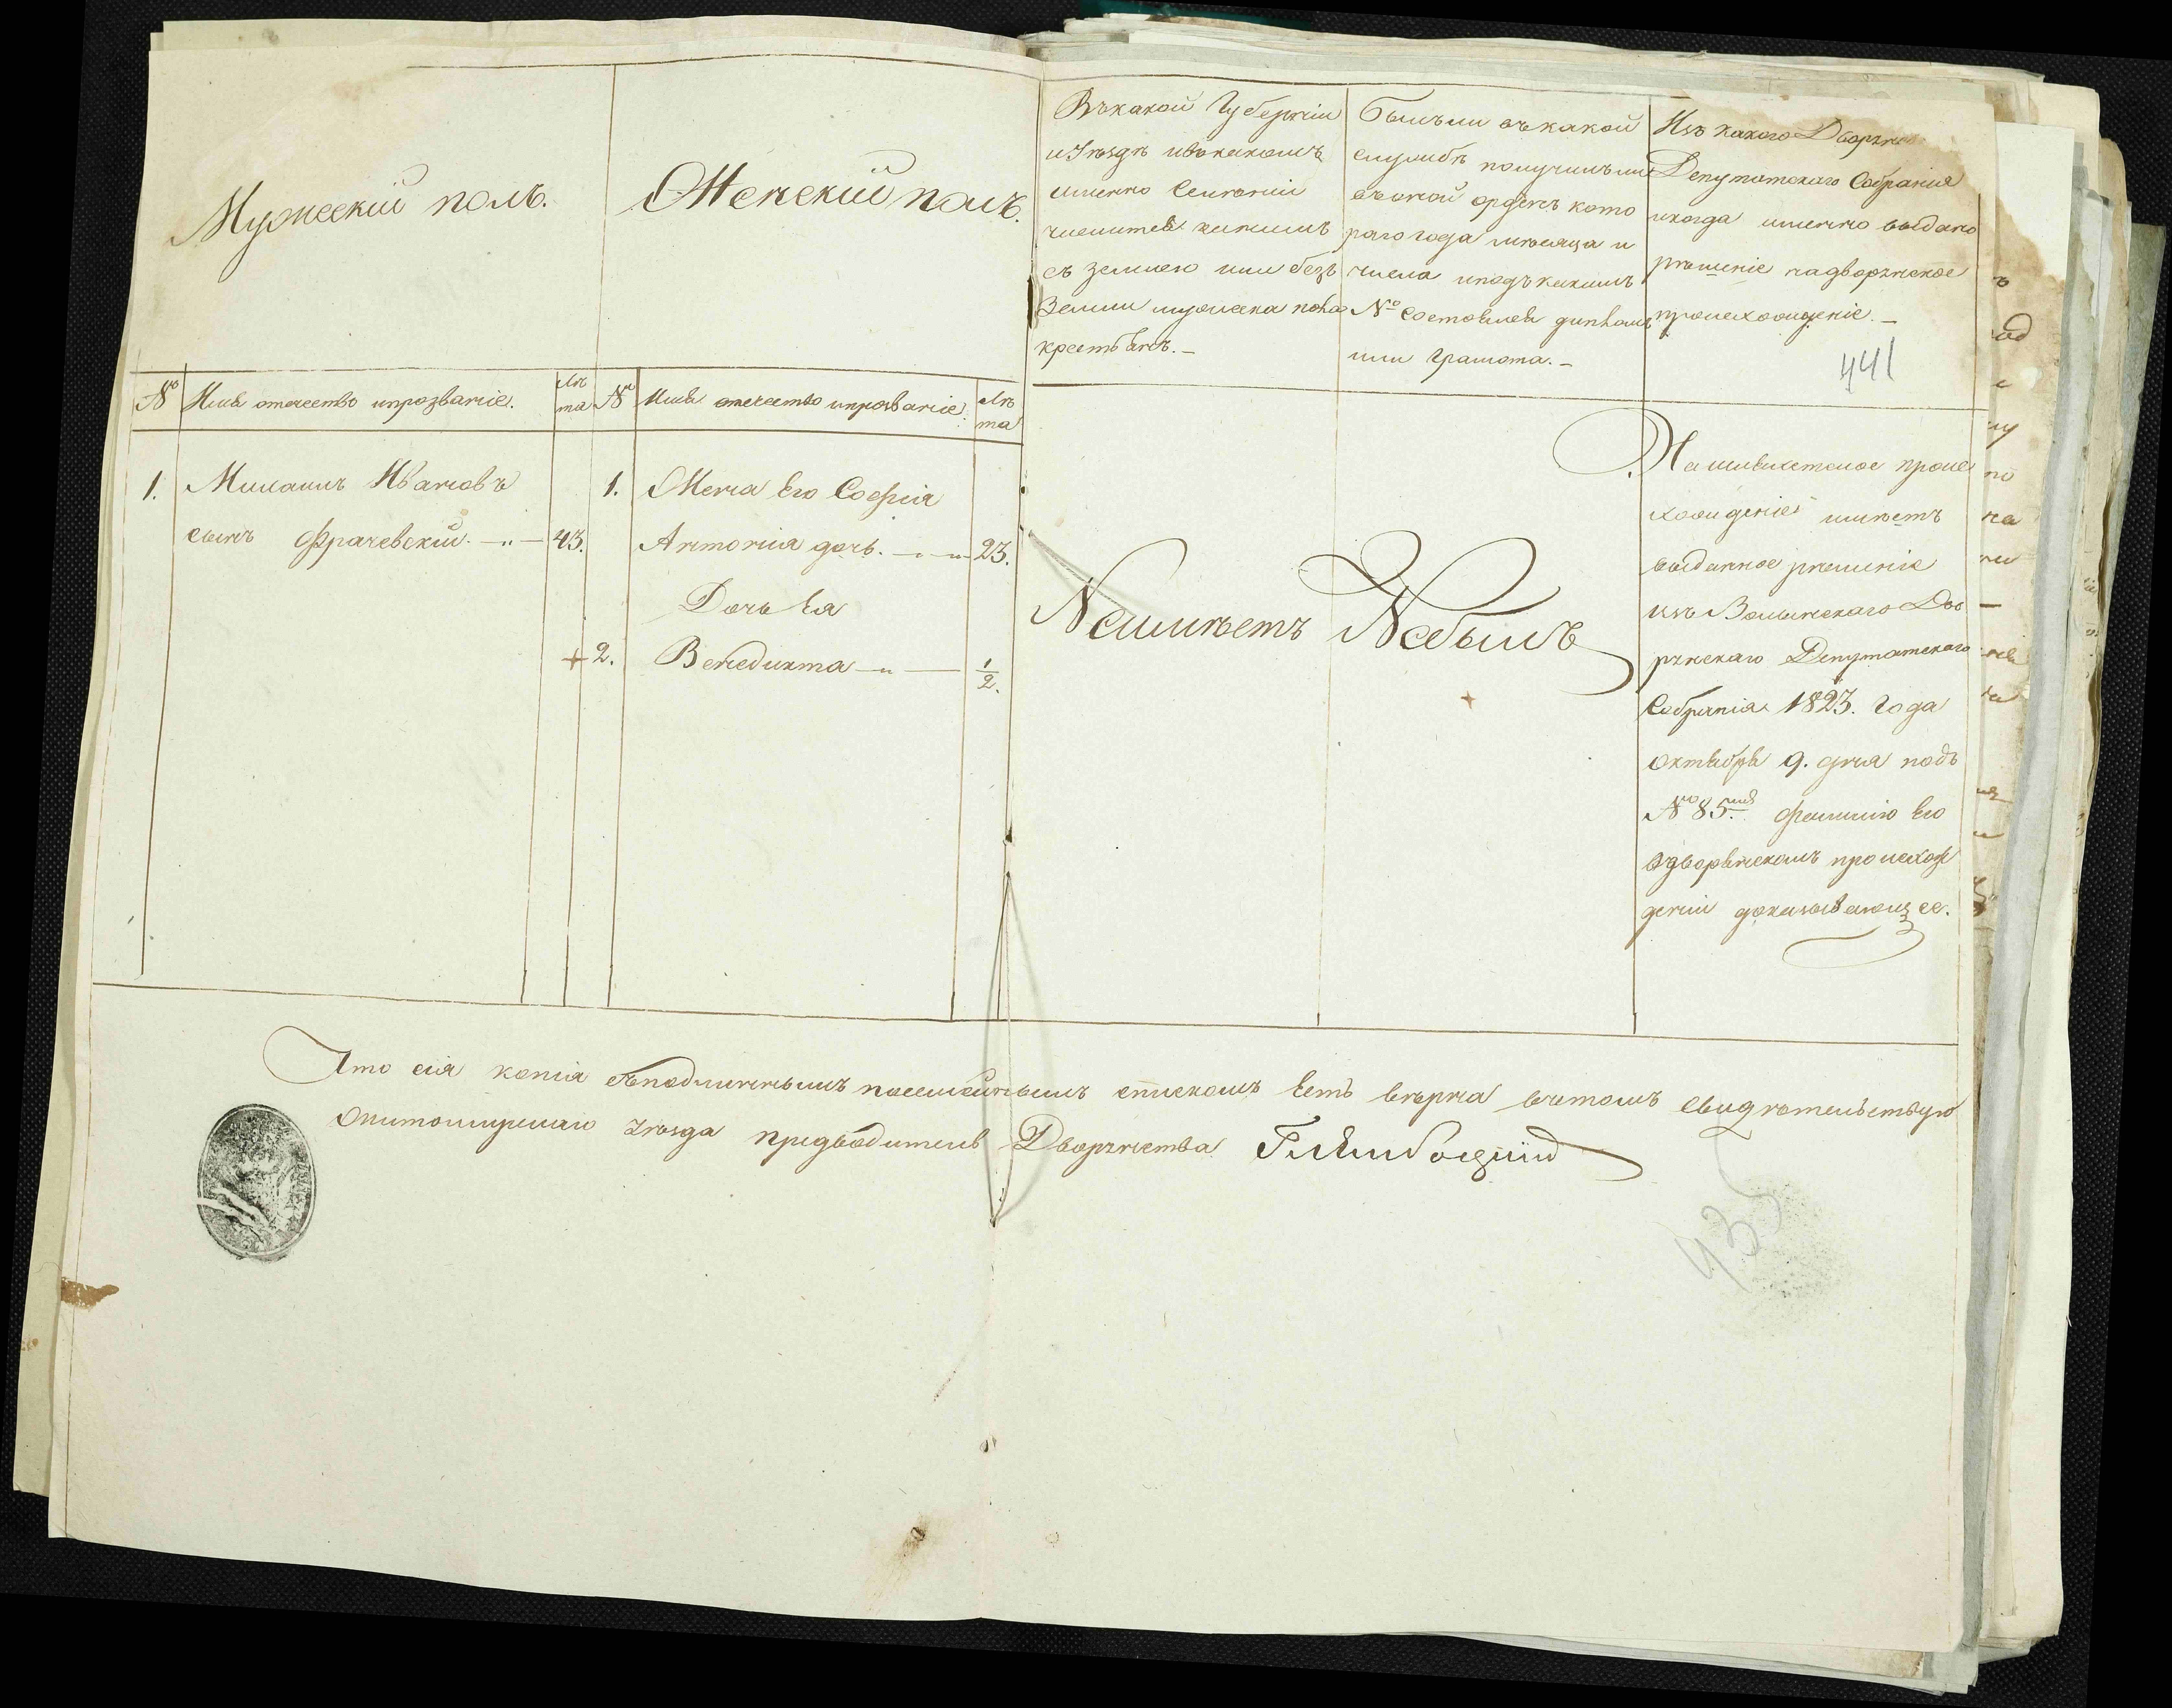 Мужескій полъ.
Женскій полъ.
Въ какой Губерніи
и Уѣздѣ и въ какомъ
именно Селеніи
числится
съ землею или безъ
Земли мужеска пола
крестьянъ.
Былъ ли въ какой
службѣ получилъ ли
въ оной орденъ кото
раго года мѣсяца и
числа и подъ какимъ
№ состоялся дипломъ
или грамота.
Изъ какого Дворян
Депутатскаго Собранія
и когда именно выдано
рѣшеніе на дворянское
происхожденіе.
441
№ Имя отечество и прозваніе. Лѣ
та
№ Имя отечество и прозваніе. Лѣ
та
1. Михаилъ Ивановъ
сынъ Фрачевскій. 43.
1. Жена Его Софія
Антонія дочь. 23.
Дочь Ея
+ 2. Бенедикта 1/2.
Неимѣетъ
Небылъ
На шляхетское проис
хожденіе имѣетъ
выданное рѣшеніе
изъ Волынскаго Дво
рянскаго Депутатскаго
Собранія 1823. Года
октября 9. дня подъ
№ 85.мъ фамилію Его
въ дворянскомъ происхож
деніи доказывающее.
Что сія копія съ подлиннымъ посемейнымъ спискомъ Есть вѣрна въ томъ свидѣтельствую
Житомирскаго уѣзда предводитель Дворянства
435